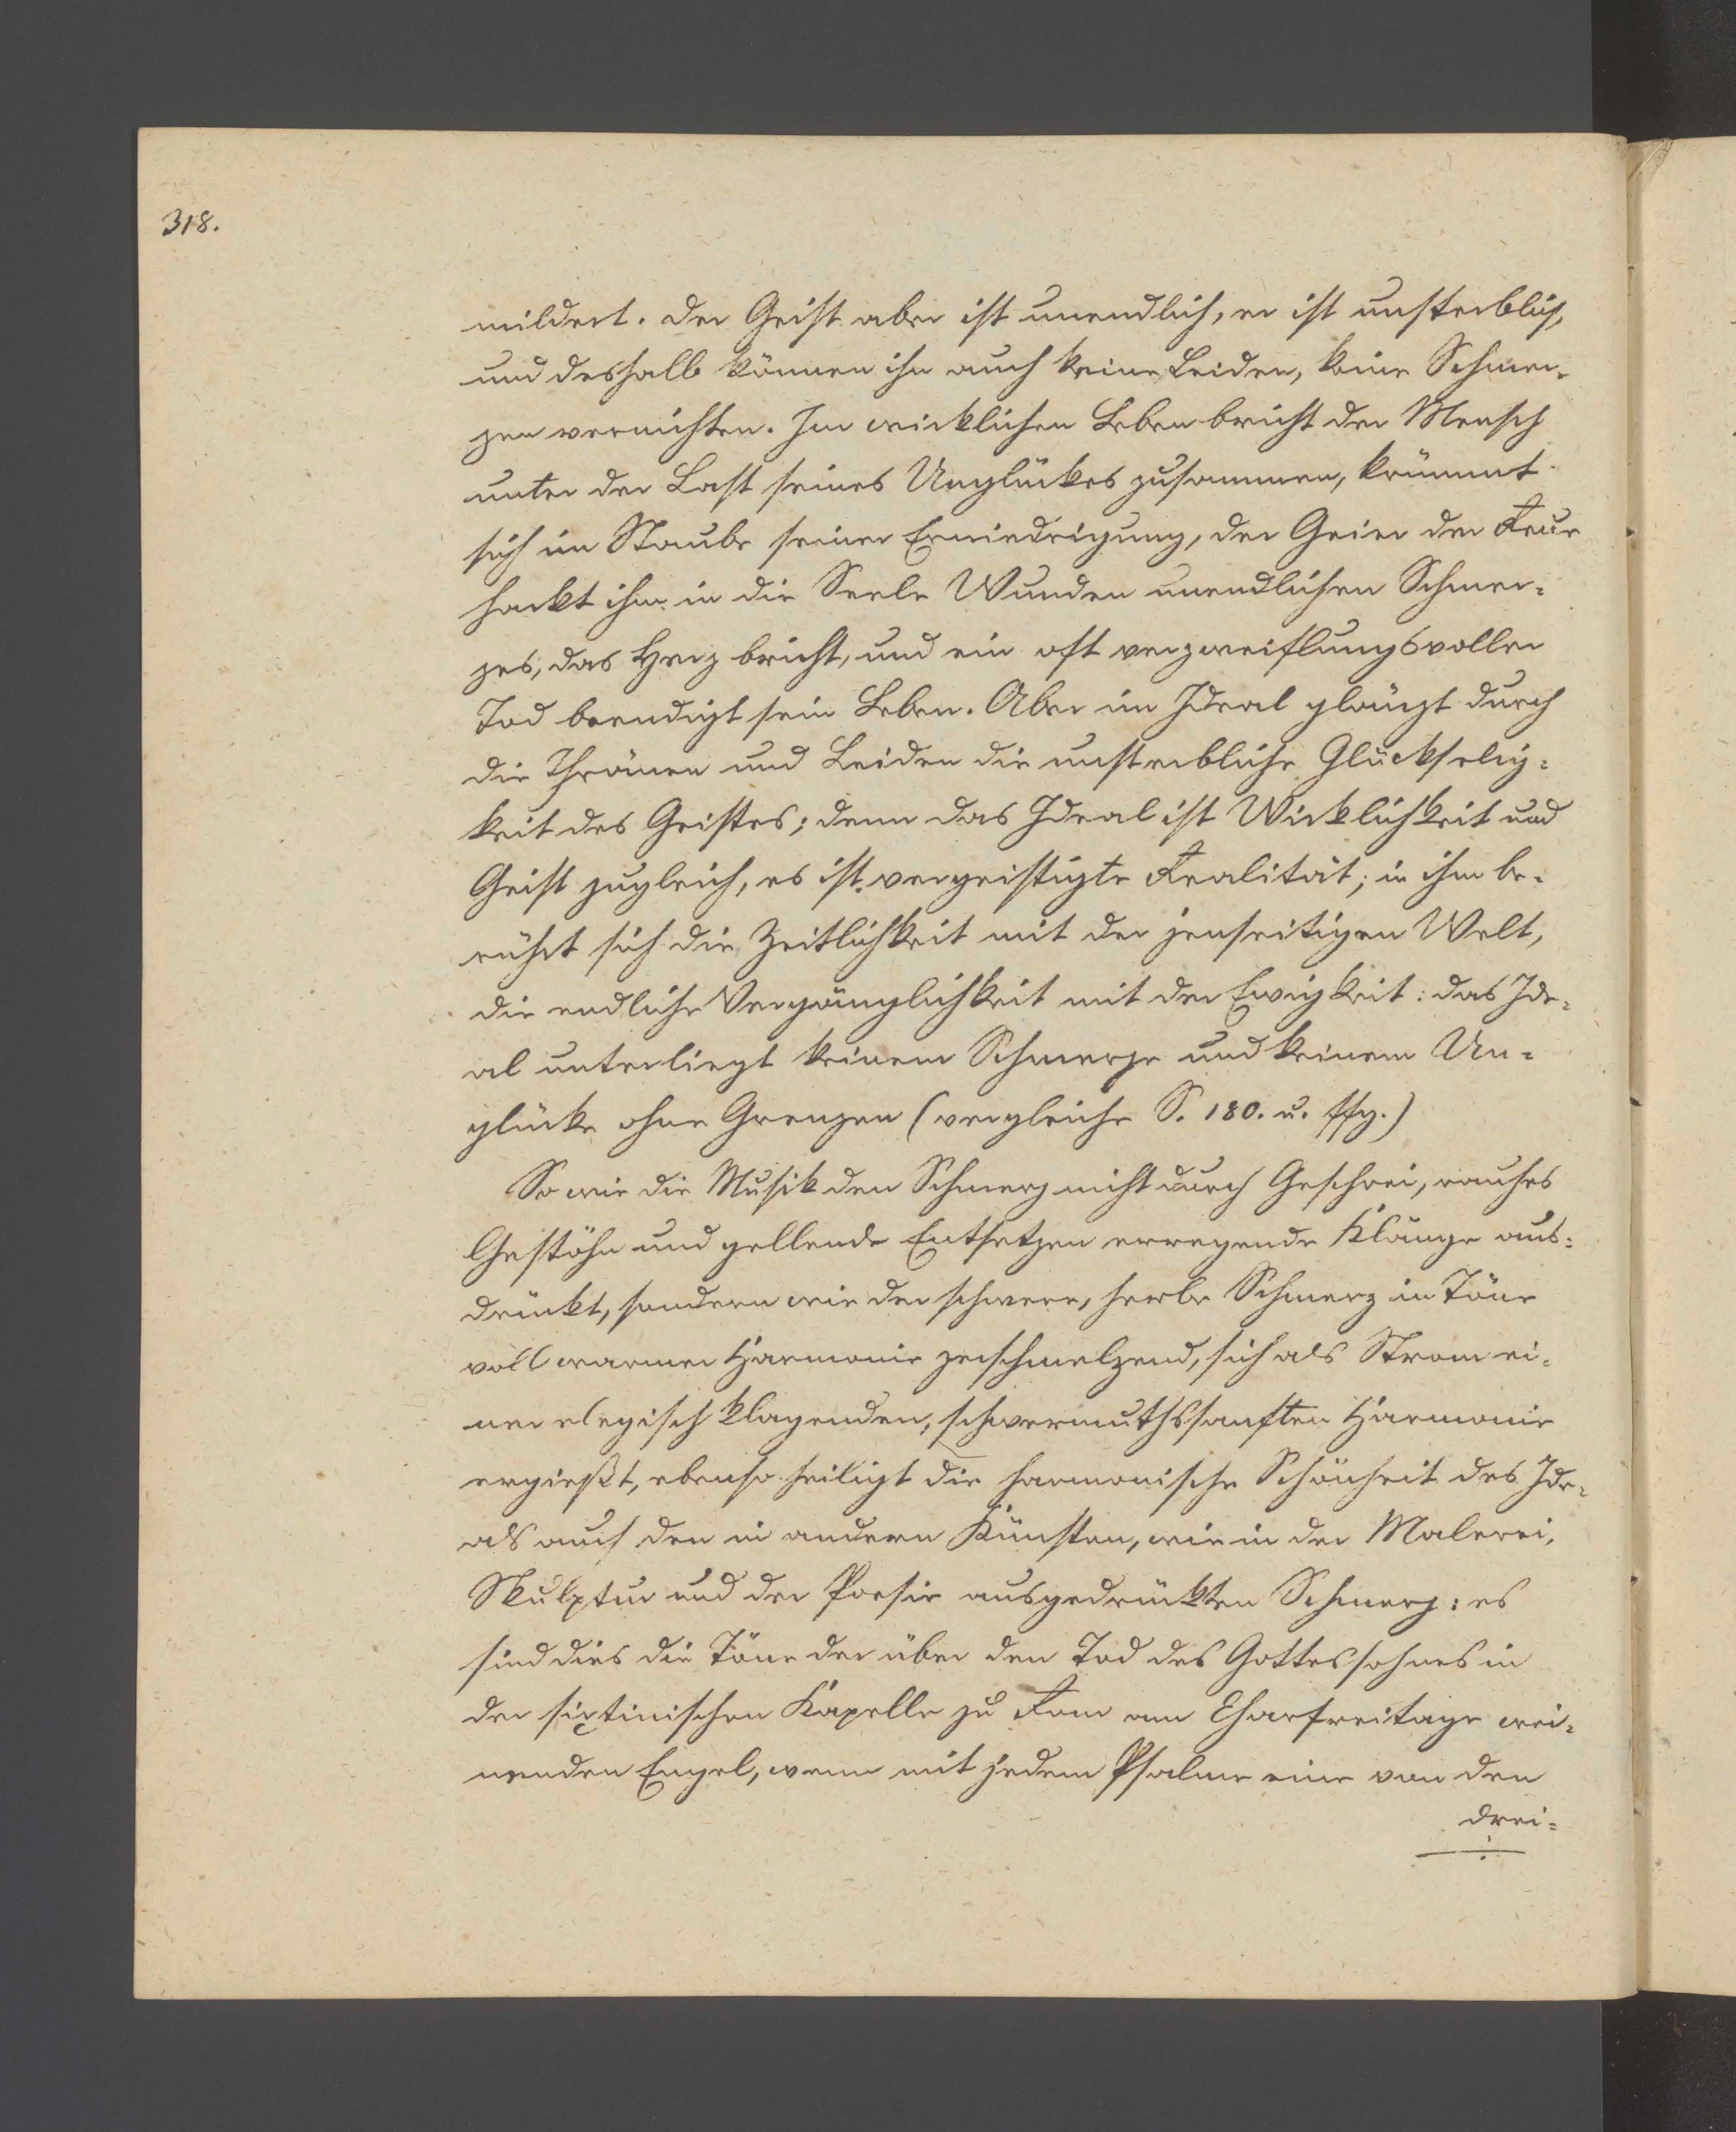 318.
mildert. Der Geist aber ist unendlich, er ist unsterblich,
und deshalb können ihn auch keine Leiden, keine Schmer-
zen vernichten. Im wirklichen Leben bricht der Mensch
unter der Last seines Unglückes zusammen, krümmt
sich im Staube seiner Erniedrigung, der Geier der Reue
hackt ihm in die Seele Wunden unendlichen Schmer-
zes, das Herz bricht, und ein oft verzweiflungsvoller
Tod beendigt sein Leben. Aber im Ideal glänzt durch
die Thränen und Leiden die unsterbliche Glückselig-
keit des Geistes; denn das Ideal ist Wirklichkeit und
Geist zugleich, es ist vergeistigte Realität; in ihm be-
rührt sich die Zeitlichkeit mit der jenseitigen Welt,
die endliche Vergänglichkeit mit der Ewigkeit: das Ide-
al unterliegt keinem Schmerze und keinem Un-
glücke ohne Grenzen (vergleiche S. 180. u. ffg.)
So wie die Musik den Schmerz nicht durch Geschrei, rauhes
Gestöhn und gellende Entsetzen erregende Klänge aus-
drückt, sondern wie der schwere, herbe Schmerz in Töne
voll warmer Harmonie zerschmelzend, sich als Strom ei-
ner elegisch klagenden, schwermuthssanften Harmonie
ergießt, ebenso heiligt die harmonische Schönheit des Ide-
als auch den in andern Künsten, wie in der Malerei,
Skulptur und der Poesie ausgedrückten Schmerz: es
sind dies die Töne der über den Tod des Gottessohnes in
der sixtinischen Kapelle zu Rom am Charfreitage wei-
nenden Engel, wenn mit jedem Psalme eine von den
drei-